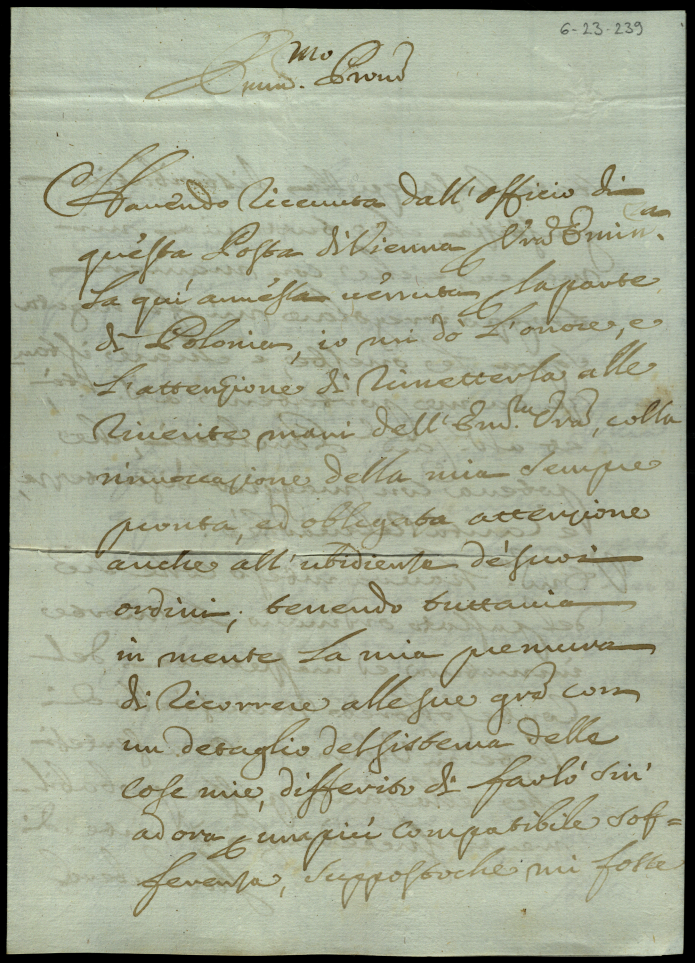 6-23-239
Emin.mo Prone
Havendo ricevuta dall'officio di
questa Posta di Vienna Vra Emin.a
la qui annessa venuta la parte
di Polonia, io mi dò l'onore, e
l'attenzione di rimetterla alle
riverite mani dell'Em.za Vra, colla
rinuocazione della mia sempre
pronta, ed obligata attenzione
anche all'ubidienza de' suoi
ordini, tenendo tuttavia
in mente la mia premura
di ricorrere alle sue gre con
un detaglio del sistema delle
cose mie, differito di farlo sin'
ad ora un più compatibile sof=
ferenza, suppostoche mi fosse